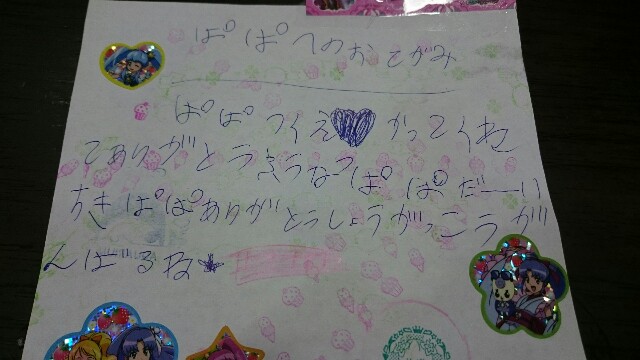 ぱぱへのおてがみ
ぱぱつくえ♥かってくれ
てありがとうきうなつぱぱだーい
すきぱぱありがとうしょうがっこうが
んばるね★